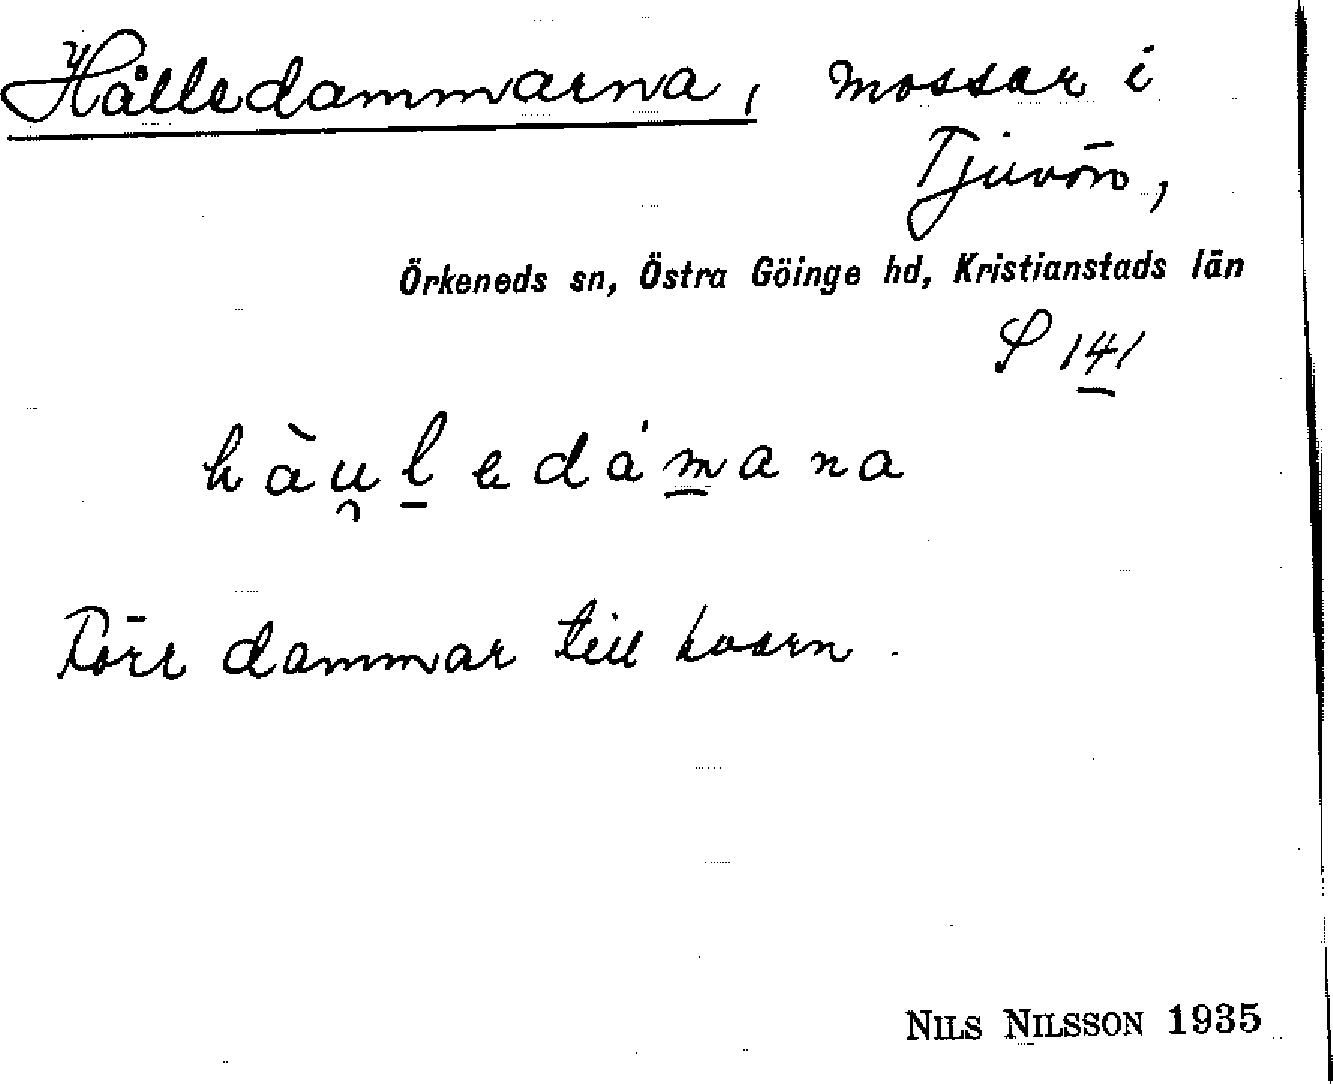 Hålledammarna, mossar i
Tjuvön,
Örkeneds sn, Östra Göinge hd, Kristianstads län
S 141
hàu̯l̲edám̲ana
Förr dammar till kvarn.
NILS NILSSON 1935